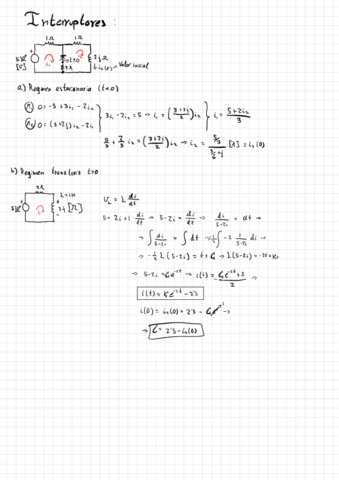 Interruptores:
1Ω 1Ω
t=0
2Ω
2j Ω
[V]
i₁
→ Valor inicial
a) Regimen estacionario (t<0)
0 = -5 + 3i₁ - 2i₂
0 = (2+2j) i₂ - 2i₁
3i₁ - 2i₂ = 5 → i₁ = (3+2j/2) i₂
i₁ = 5+2i₂/3
5/3 + 2/3 i₂ = (3+2j/2) i₂ → i₂ = 5/3 / 5/6+j [A] = i₂(0)
b) Regimen transitorio t>0
2Ω
L=1H
2j [Ω]
U_L = L di/dt
5 = 2i + 1 di/dt → 5-2i = di/dt → di/5-2i = dt →
→ ∫ di/5-2i = ∫ dt → -1/2 ∫ -2 1/5-2i di →
→ -1/2 L(5-2i) = t + C → L(5-2i) = -2t + K₁
→ 5-2i = C₁e⁻²ᵗ → i(t) = C₁e⁻²ᵗ+5/2 →
i(t) = Ke⁻²ᵗ - 2'5
i(0) = i₂(0) = 2'5 -
→ C = 2'5 - i₂(0)